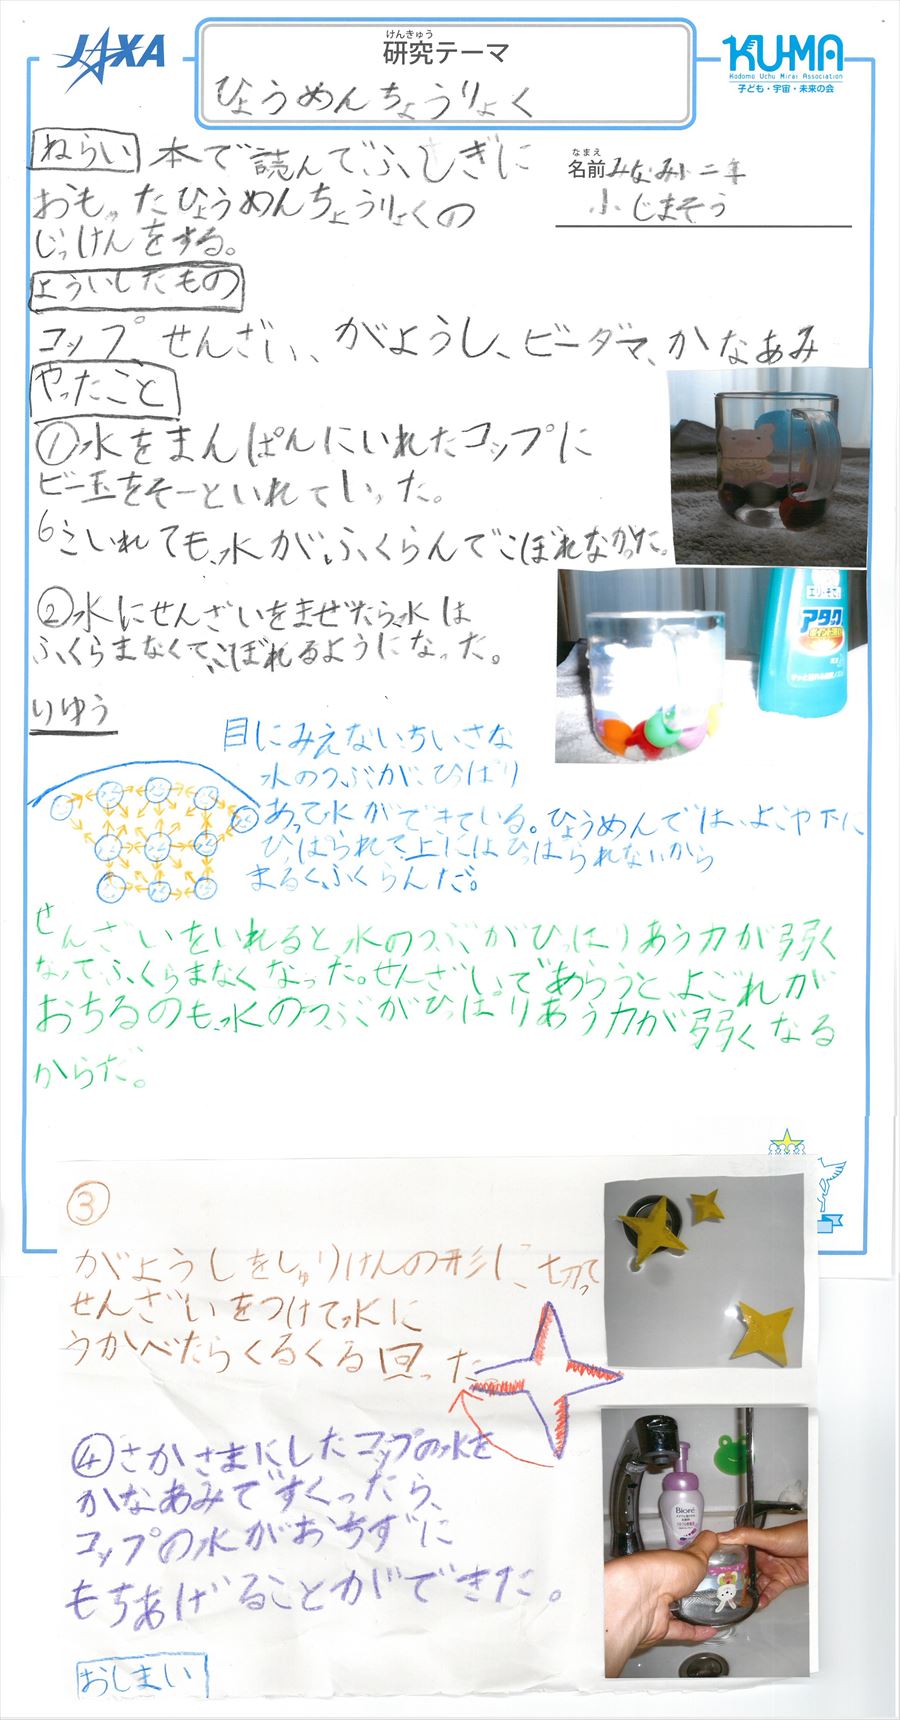 JAXA
けんきゅう
研究テーマ
ひょうめんちょうりょく
KU-MA
Kodomo Uchu Mirai Association
子ども・宇宙・未来の会
なまえ
名前 みなみ小二年
ふじまそう
ねらい 本で読んでふしぎに
おもったひょうめんちょうりょくの
じっけんをする。
よういしたもの
コップ せんざい、がようし、ビーダマ、かなあみ
やったこと
①水をまんぱんにいれたコップに
ビー玉をそーといれていった。
6こいれても、水がふくらんでこぼれなかった。
②水にせんざいをまぜたら水は
ふくらまなくて、こぼれるようになった。
エリ・そで
アタック
りゆう
目にみえないちいさな
水のつぶがにひっぱり
あって水ができている。ひょうめんでは、よこや下に
ひっぱられて、上にはひっぱられないから
まるくふくらんだ。
せんざいをいれると水のつぶがひっぱりあう力が弱く
なってふくらまなくなった。せんざいであらうと、よごれが
おちるのも、水のつぶがひっぱりあう力が弱くなる
からだ。
③
がようしをしゅりけんの形に切って
せんざいをつけて水に
うかべたらくるくる回った
④さかさまにしたコップの水を
かなあみですくったら、
コップの水がおちずに
もちあげることができた。
Bioré
おしまい